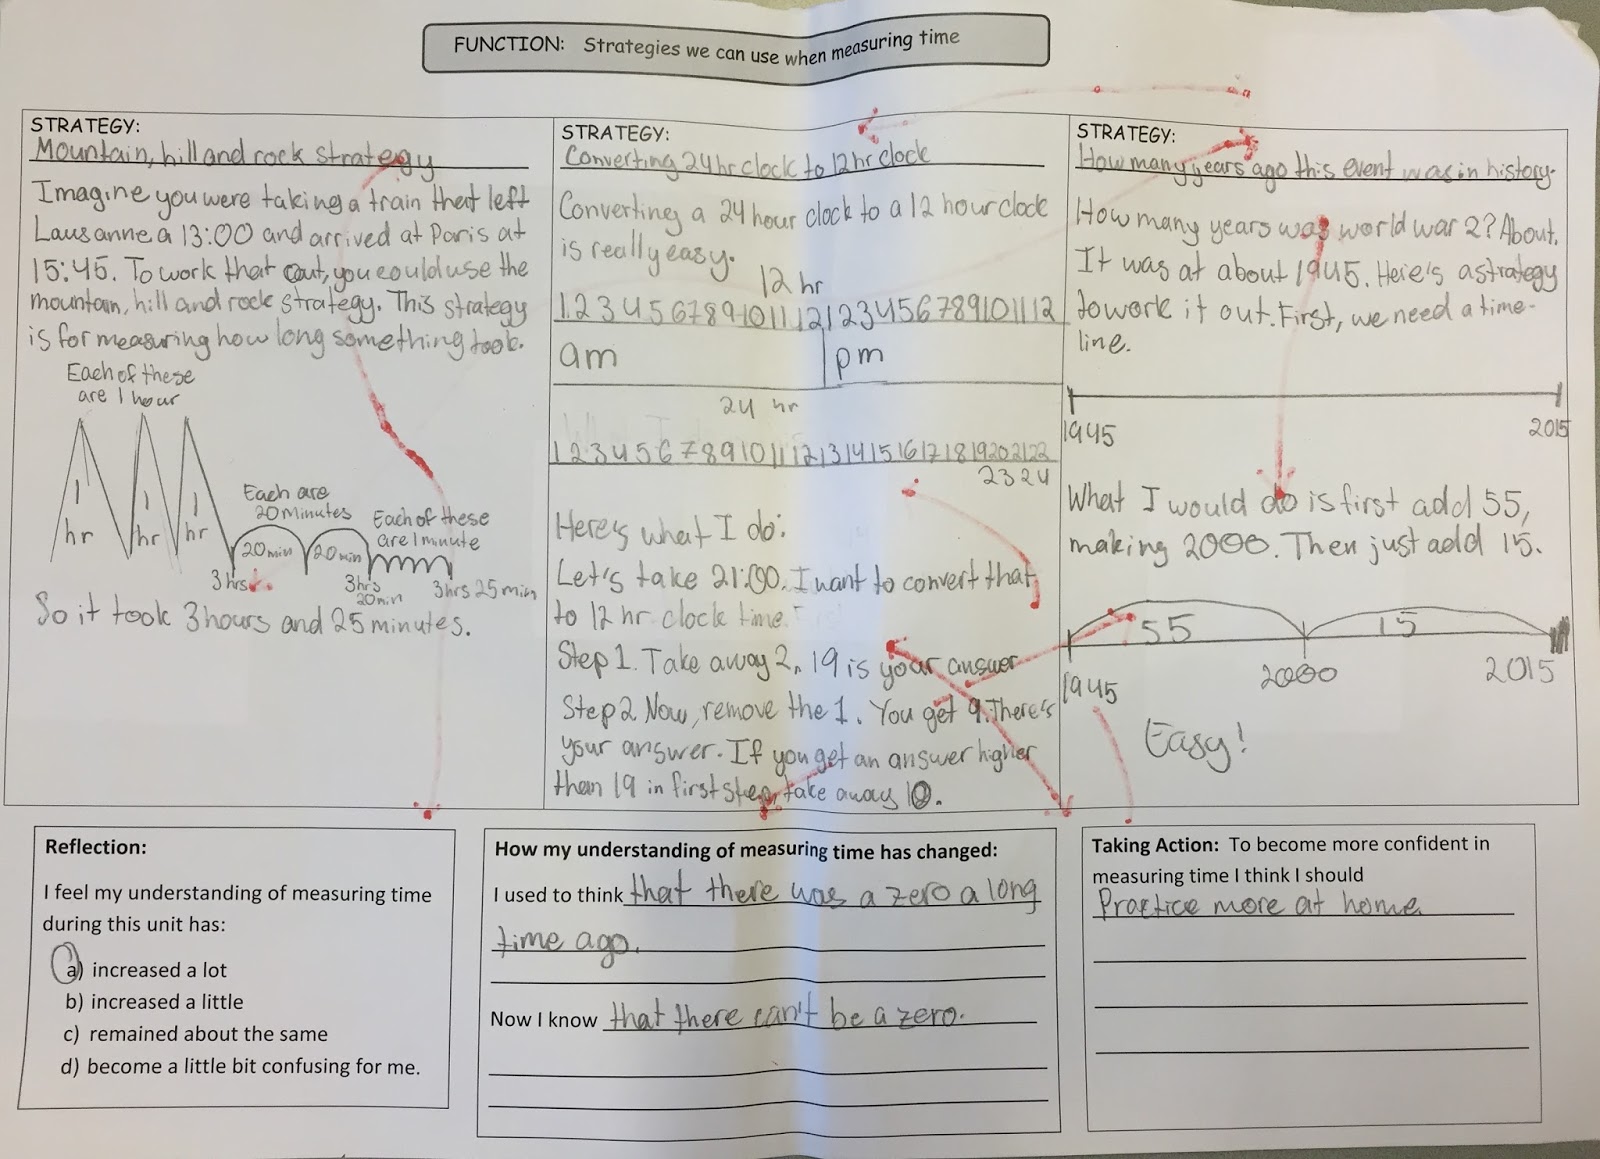 FUNCTION: Strategies we can use when measuring time
STRATEGY:
Mountain, hill and rock strategy
Imagine you were taking a train that left
Lausanne a 13:00 and arrived at Paris at
15:45. To work that out, you could use the
mountain, hill and rock strategy. This strategy
is for measuring how long something took.
Each of these
are 1 hour
1 hr
1 hr
1 hr
Each are
20 minutes
20 min
20 min
Each of these
are 1 minute
3 hrs
3 hrs
20 min
3 hrs 25 min
So it took 3 hours and 25 minutes.
STRATEGY:
Converting 24 hr clock to 12 hr clock
Converting a 24 hour clock to a 12 hour clock
is really easy.
12 hr
1 2 3 4 5 6 7 8 9 10 11 12 1 2 3 4 5 6 7 8 9 10 11 12
am pm
24 hr
1 2 3 4 5 6 7 8 9 10 11 12 13 14 15 16 17 18 19 20 21 22
23 24
Here's what I do:
Let's take 21:00. I want to convert that
to 12 hr clock time.
Step 1. Take away 2, 19 is your answer
Step 2 Now, remove the 1. You get 9. There's
your answer. If you get an answer higher
than 19 in first step, take away 10.
STRATEGY:
How many years ago this event was in history.
How many years was world war 2? About.
It was at about 1945. Here's a strategy
to work it out. First, we need a time-
line.
1945 2015
What I would do is first add 55,
making 2000. Then just add 15.
55 15
1945 2000 2015
Easy!
Reflection:
I feel my understanding of measuring time
during this unit has:
a) increased a lot
b) increased a little
c) remained about the same
d) become a little bit confusing for me.
How my understanding of measuring time has changed:
I used to think that there was a zero a long
time ago.
Now I know that there can't be a zero.
Taking Action: To become more confident in
measuring time I think I should
Practice more at home.